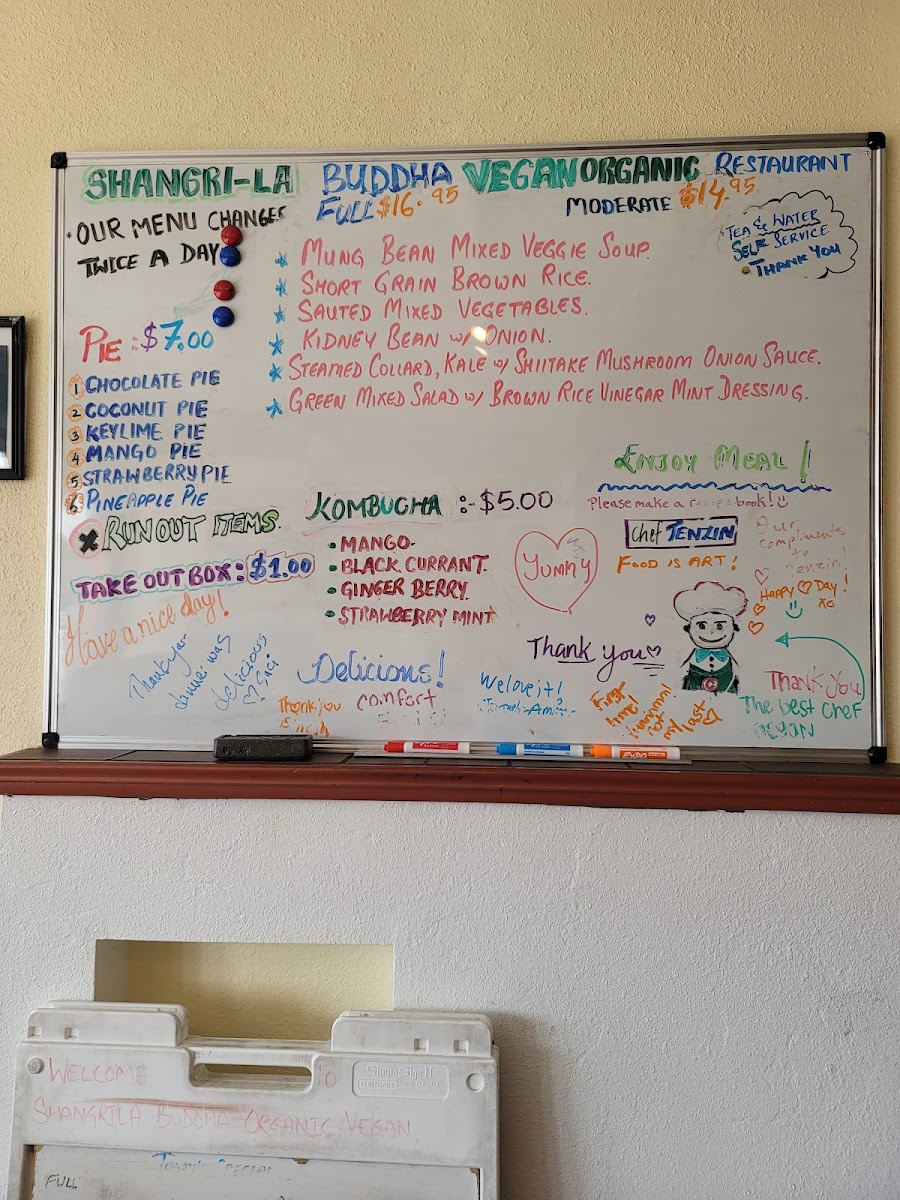 SHANGRI-LA BUDDHA VEGAN ORGANIC RESTAURANT
FULL $16.95 MODERATE $14.95
* OUR MENU CHANGES
TWICE A DAY
TEA & WATER
SELF SERVICE
THANK YOU
MUNG BEAN MIXED VEGGIE SOUP.
SHORT GRAIN BROWN RICE.
SAUTED MIXED VEGETABLES.
KIDNEY BEAN w/ ONION.
STEAMED COLLARD, KALE w/ SHIITAKE MUSHROOM ONION SAUCE.
GREEN MIXED SALAD w/ BROWN RICE VINEGAR MINT DRESSING.
PIE :$7.00
1 CHOCOLATE PIE
2 COCONUT PIE
3 KEYLIME PIE
4 MANGO PIE
5 STRAWBERRY PIE
6 PINEAPPLE PIE
X RUN OUT ITEMS.
TAKE OUT BOX: $1.00
Have a nice day!
KOMBUCHA :-$5.00
• MANGO.
• BLACK CURRANT.
• GINGER BERRY.
• STRAWBERRY MINT
YUMMY
ENJOY MEAL!
Please make a recipe book!
Chef TENZIN
FOOD IS ART!
Our
compliments
to
Tenzin!
HAPPY DAY!
xo
Thank you
Thank you
dinner was
delicious
Delicious!
Thank you
comfort
We love it!
First
time!
Thank you
The best chef
WELCOME TO
SHANGRILA BUDDHA ORGANIC VEGAN
Simpo Sign II
TODAY'S SPECIAL
FULL